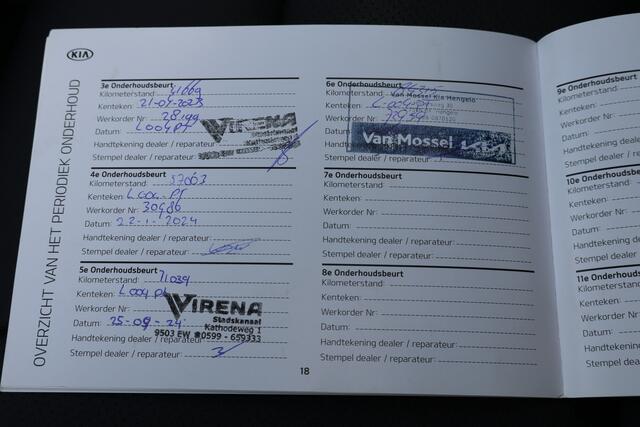 KIA
OVERZICHT VAN HET PERIODIEK ONDERHOUD
3e Onderhoudsbeurt
Kilometerstand:
Kenteken: 21-04-2023
Werkorder Nr:
Datum: L004PT
Handtekening dealer / reparateur:
Stempel dealer / reparateur:
VIRENA
4e Onderhoudsbeurt
Kilometerstand: 57063
Kenteken: L004 PT
Werkorder Nr: 30486
Datum: 22-1-2024
Handtekening dealer / reparateur:
Stempel dealer / reparateur:
5e Onderhoudsbeurt
Kilometerstand: 71039
Kenteken: L004
Werkorder Nr:
Datum: 25-09-24
Handtekening dealer / reparateur:
Stempel dealer / reparateur:
VIRENA
Stadskanaal
Kathodeweg 1
9503 EW ☎0599 - 659333
6e Onderhoudsbeurt
Kilometerstand:
Kenteken:
Werkorder Nr:
Datum:
Handtekening dealer
Stempel dealer / reparateur
Van Mossel Kia Hengelo
Van Mossel KIA
7e Onderhoudsbeurt
Kilometerstand:
Kenteken:
Werkorder Nr:
Datum:
Handtekening dealer / reparateur:
Stempel dealer / reparateur:
8e Onderhoudsbeurt
Kilometerstand:
Kenteken:
Werkorder Nr:
Datum:
Handtekening dealer / reparateur:
Stempel dealer / reparateur:
18
9e Onderhoudsbeurt
Kilometerstand:
Kenteken:
Werkorder Nr:
Datum:
Handtekening
Stempel dealer
10e Onderhoudsbeurt
Kilometerstand:
Kenteken:
Werkorder Nr:
Datum:
Handtekening
Stempel dealer
11e Onderhoudsbeurt
Kilometerstand:
Kenteken:
Werkorder Nr:
Datum:
Handtekening
Stempel dealer